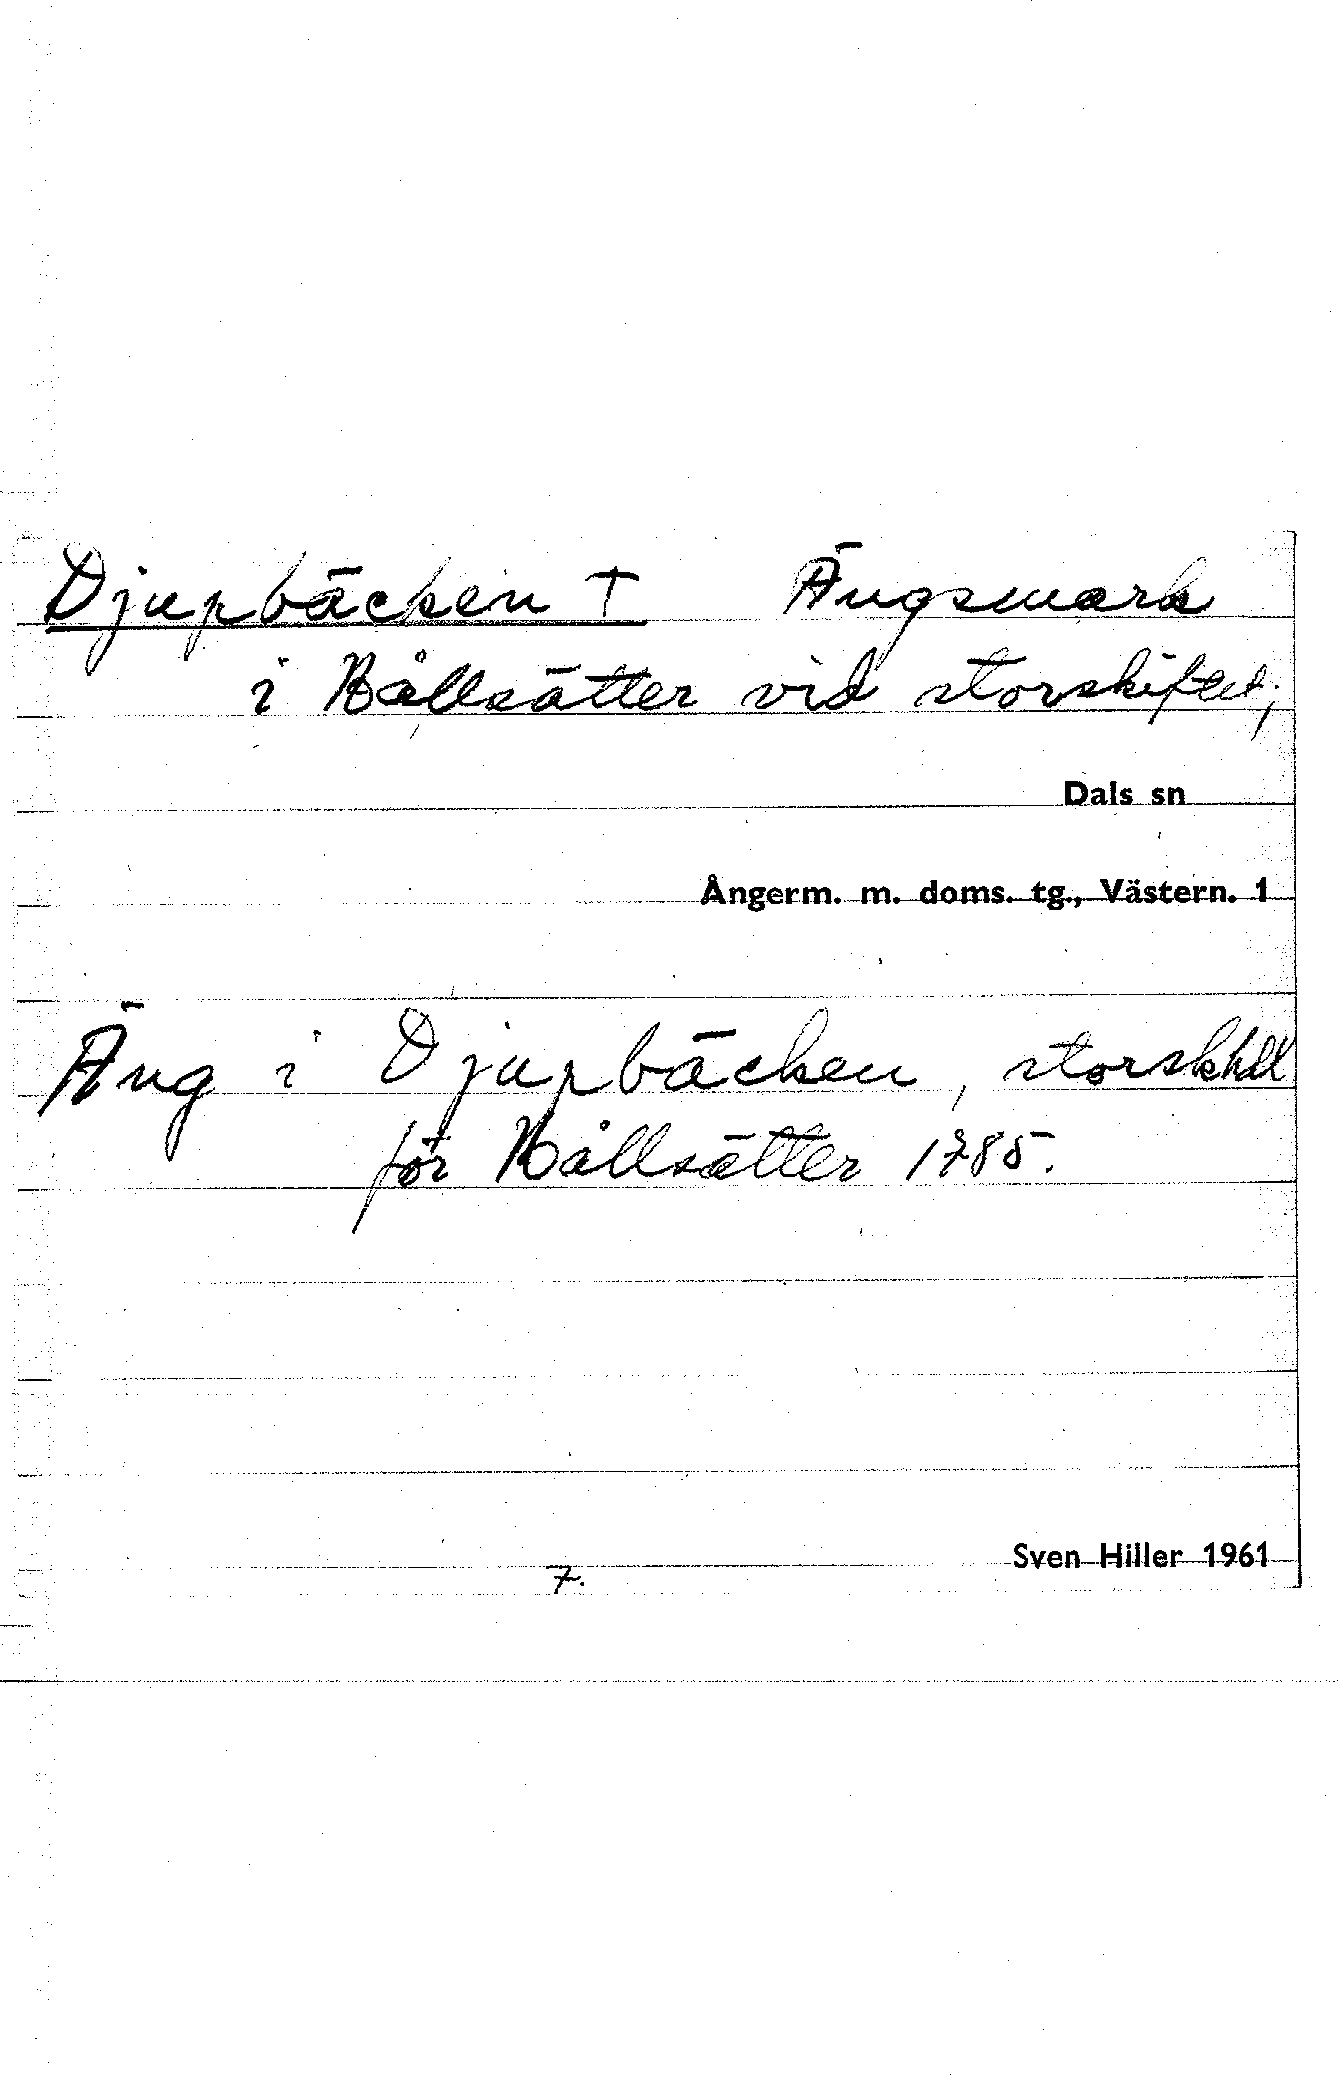 Djupbäcken † Ängsmark
i Bållsätter vid storskiftet;
Dals sn
Ångerm. m. doms. tg., Västern. 1
Äng i Djupbäcken, storskhdl
för Bållsätter 1785.
Sven Hiller 1961
7.